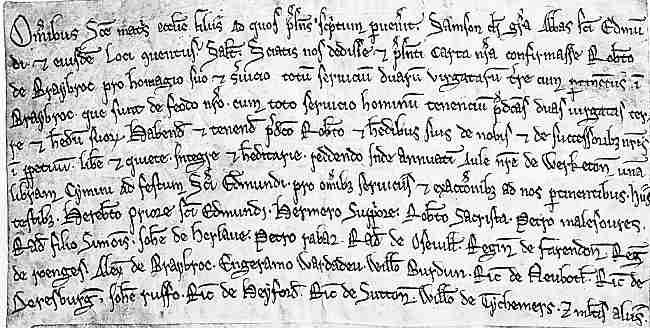 Omibus Sce matris ecctie filiis ad quos psens scptum puenit. Samson di gra Abbas sci Edmu
di. et eiusdem Loci quentus salt. Sciatis nos dedisse et psenti carta nra confirmasse Robto
de Braybroc pro homagio suo et suicio totu seruiciu duaru uirgataru tre cum ptinentiis i
Braybroc. que sunt de feodo nro. cum toto seruicio hominu tenenciu pdcas duas uirgatas ter
re et hedu suoy. Habend et tenend pdco Robto et hedibus suis de nobis et de successoribz nris
i ppetuu. libe et quiete. integre et heditarie. reddendo inde annuati aule nre de Werketon una
libram Cymini ad festum Sci Edmundi. pro omibz seruiciis et exactonibz ad nos ptinentibus. hiis
testibz. Hereberto priore sci Edmundi. Hermero Suppiore. Robto Sacrista. Petro malesoures.
Rad filio Simonis. Johe de Herlaue. Petro rabaz. Rad de Oseuill. Regin de farendon. Reg
de roenges. Alex de Braybroc. Engeramo Wardadeu. Willo Burdun. Ric de Neubotl. Ric de
Deresburg. Johe ruffo. Ric de Heyford. Ric de Sutton. Willo de Tychemers. et mltis aliis.